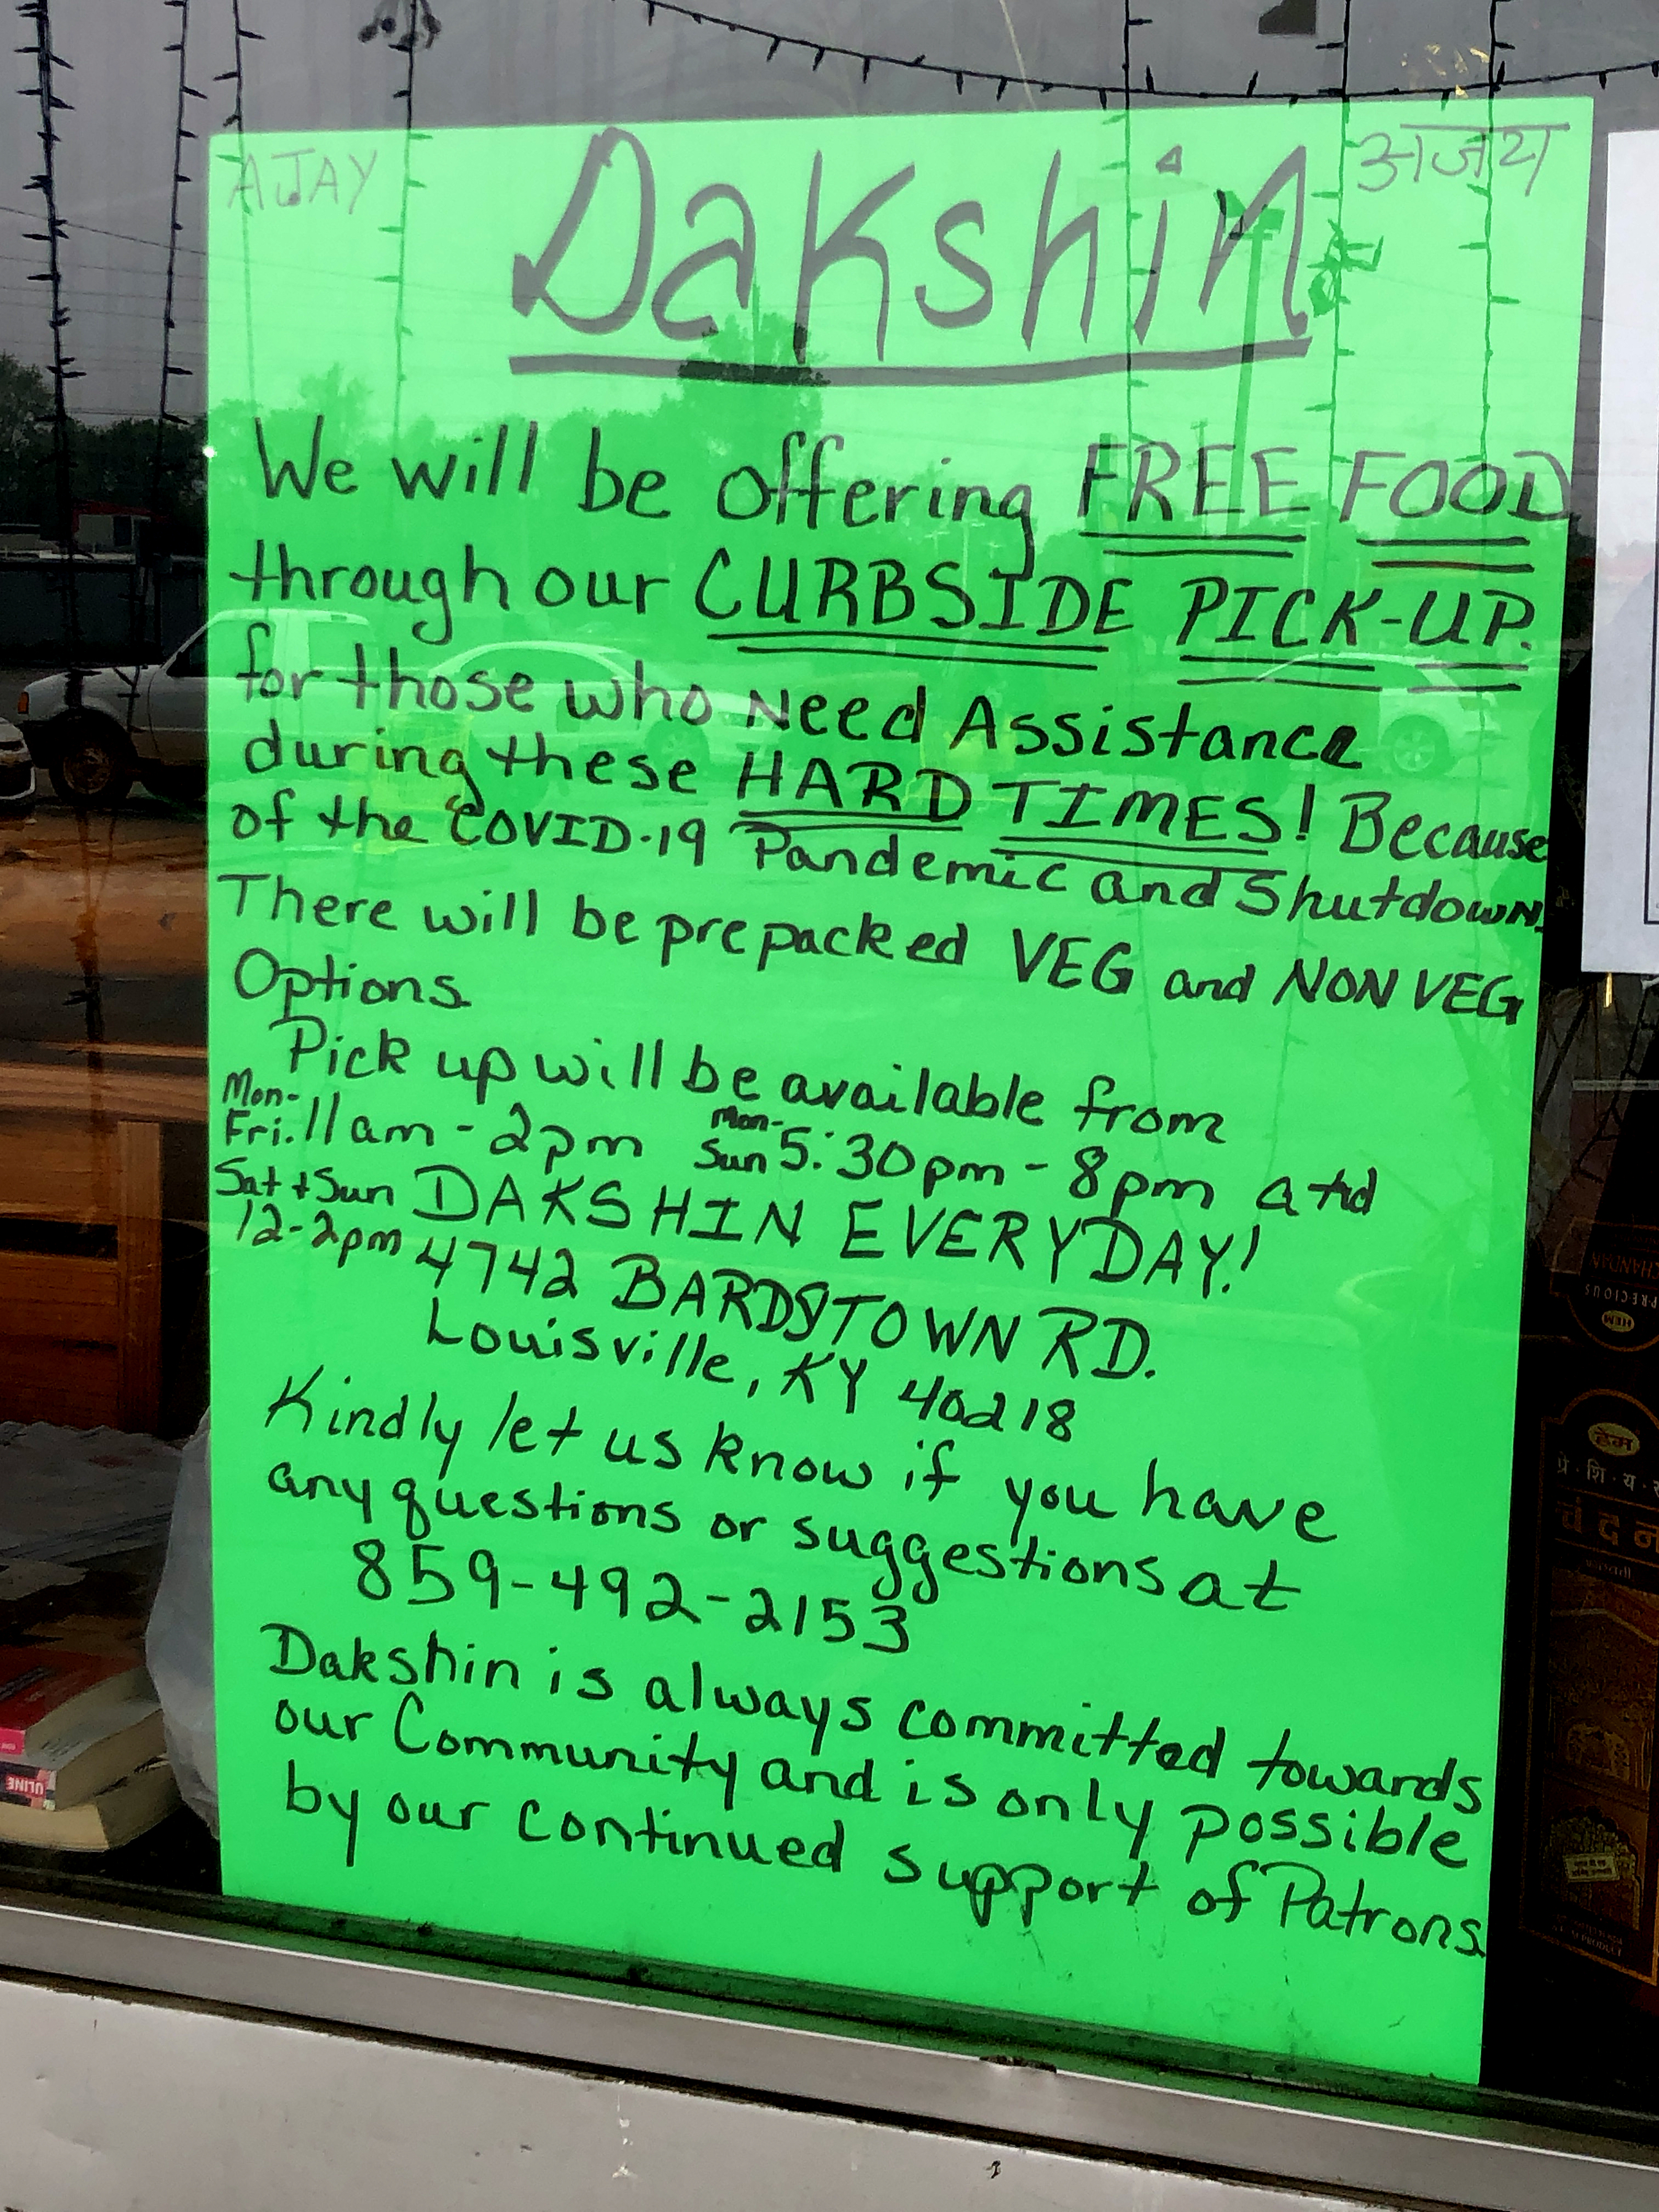 AJAY
Dakshin
अजय
We will be offering FREE FOOD
through our CURBSIDE PICK-UP.
for those who Need Assistance
during these HARD TIMES! Because
of the COVID-19 Pandemic and Shutdown.
There will be prepacked VEG and NON VEG
Options.
Pick up will be available from
Mon-
Fri. 11am - 2pm Mon-
Sun 5:30pm - 8pm atd
Sat + Sun DAKSHIN EVERYDAY!
12-2pm 4742 BARDSTOWN RD.
Louisville, KY 40218
Kindly let us know if you have
any questions or suggestions at
859-492-2153
Dakshin is always committed towards
our Community and is only possible
by our continued support of Patrons.
CHANDAN
PRECIOUS
HEM
हेम
प्रे·शि·य·
चंदन
ULINE